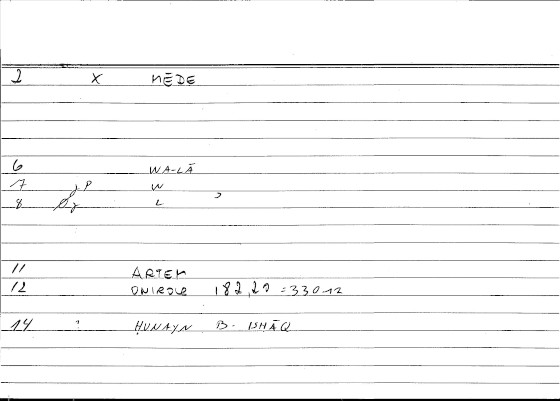 2 X MĒDE
6 WA-LĀ
7 P W
8 L
11 ARTEM
12 ONIROCR 182,20 = 33012
14 ḤUNAYN B. ISḤĀQ